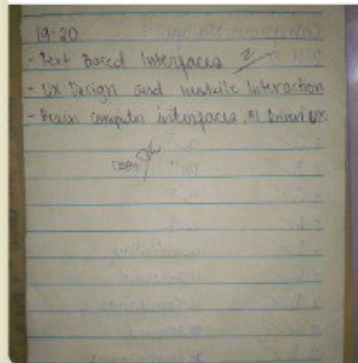 19-20
- Text Based Interfaces
- UX Design and mobile Interaction
- Brain computer interfaces, AI Driven UX